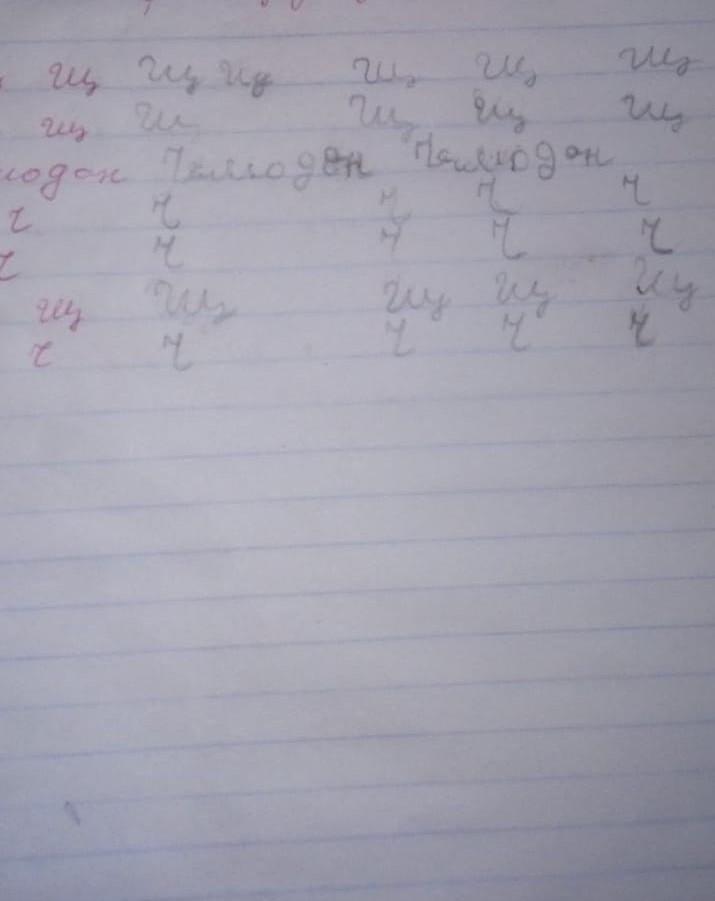 щ щ щ щ щ щ
щ щ щ щ щ
Чемодан Чемодан
ч ч ч ч ч
ч ч ч ч ч
щ щ щ щ щ
ч ч ч ч ч